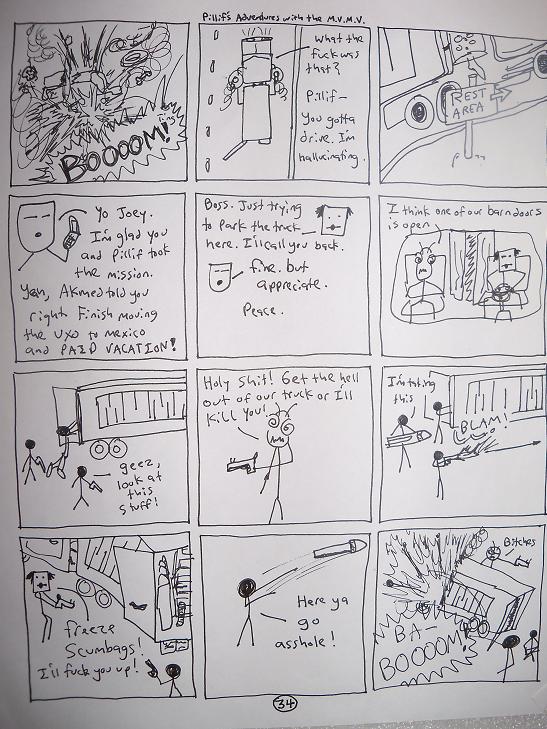 Pillif's Adventures with the M.V.M.V.
BOOOOM!
What the
fuck was
that?
Pillif—
You gotta
drive. I'm
hallucinating.
REST
AREA
Yo Joey.
I'm glad you
and Pillif took
the mission.
Yeah, Akmed told you
right. Finish moving
the UXO to Mexico
and PAID VACATION!
Boss. Just trying
to park the truck
here. I'll call you back.
fine. but
appreciate.
Peace.
I think one of our barn doors
is open
geez,
look at
this
stuff!
Holy Shit! Get the hell
out of our truck or I'll
kill you!
I'm taking
this
BLAM!
freeze
Scumbags!
I'll fuck you up!
Here ya
go
asshole!
Bitches
BA-
BOOOOM!
34